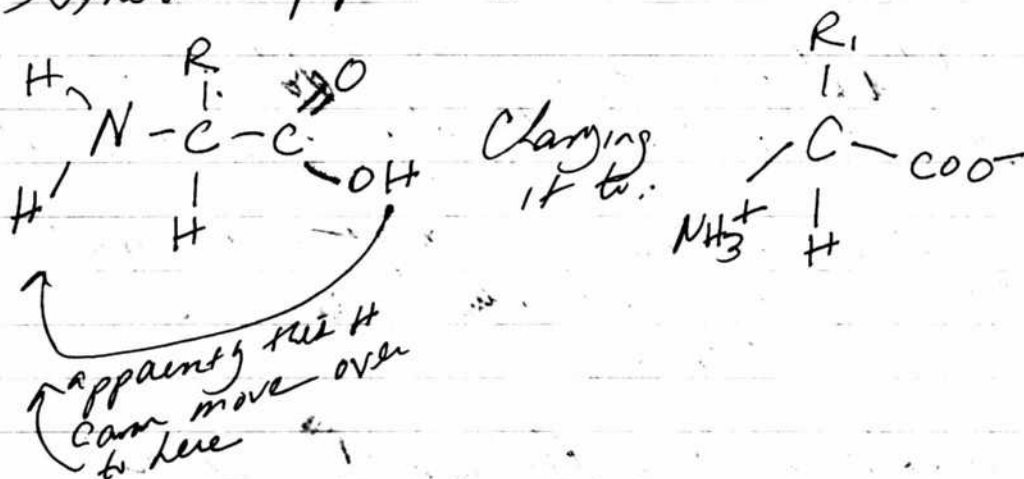 R
H
N - C - C
O
OH
H
H
Changing
it to:
R1
C
COO-
NH3+
H
appaently this H
cann move over
to here